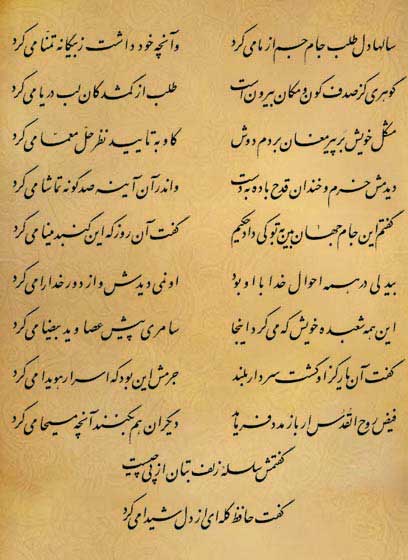 سالها دل طلب جام جم از ما می کرد وآنچه خود داشت ز بیگانه تمنّا می کرد
گوهری کز صدف کون و مکان بیرون است طلب از گمشدگان لب دریا می کرد
مشکل خویش بر پیر مغان بردم دوش کاو به تایید نظر حلّ معمّا می کرد
دیدمش خرم و خندان قدح باده به دست واندر آن آینه صد گونه تماشا می کرد
گفتم این جام جهان بین به تو کی داد حکیم گفت آن روز که این گنبد مینا می کرد
بیدلی در همه احوال خدا با او بود او نمی دیدش و از دور خدا را می کرد
این همه شعبده خویش که می کرد اینجا سامری پیش عصا و ید بیضا می کرد
گفت آن یار کز او گشت سر دار بلند جرمش این بود که اسرار هویدا می کرد
فیض روح القدس ار باز مدد فرماید دیگران هم بکنند آنچه مسیحا می کرد
گفتمش سلسلهٔ زلف بتان از پی چیست
گفت حافظ گله ای از دل شیدا می کرد